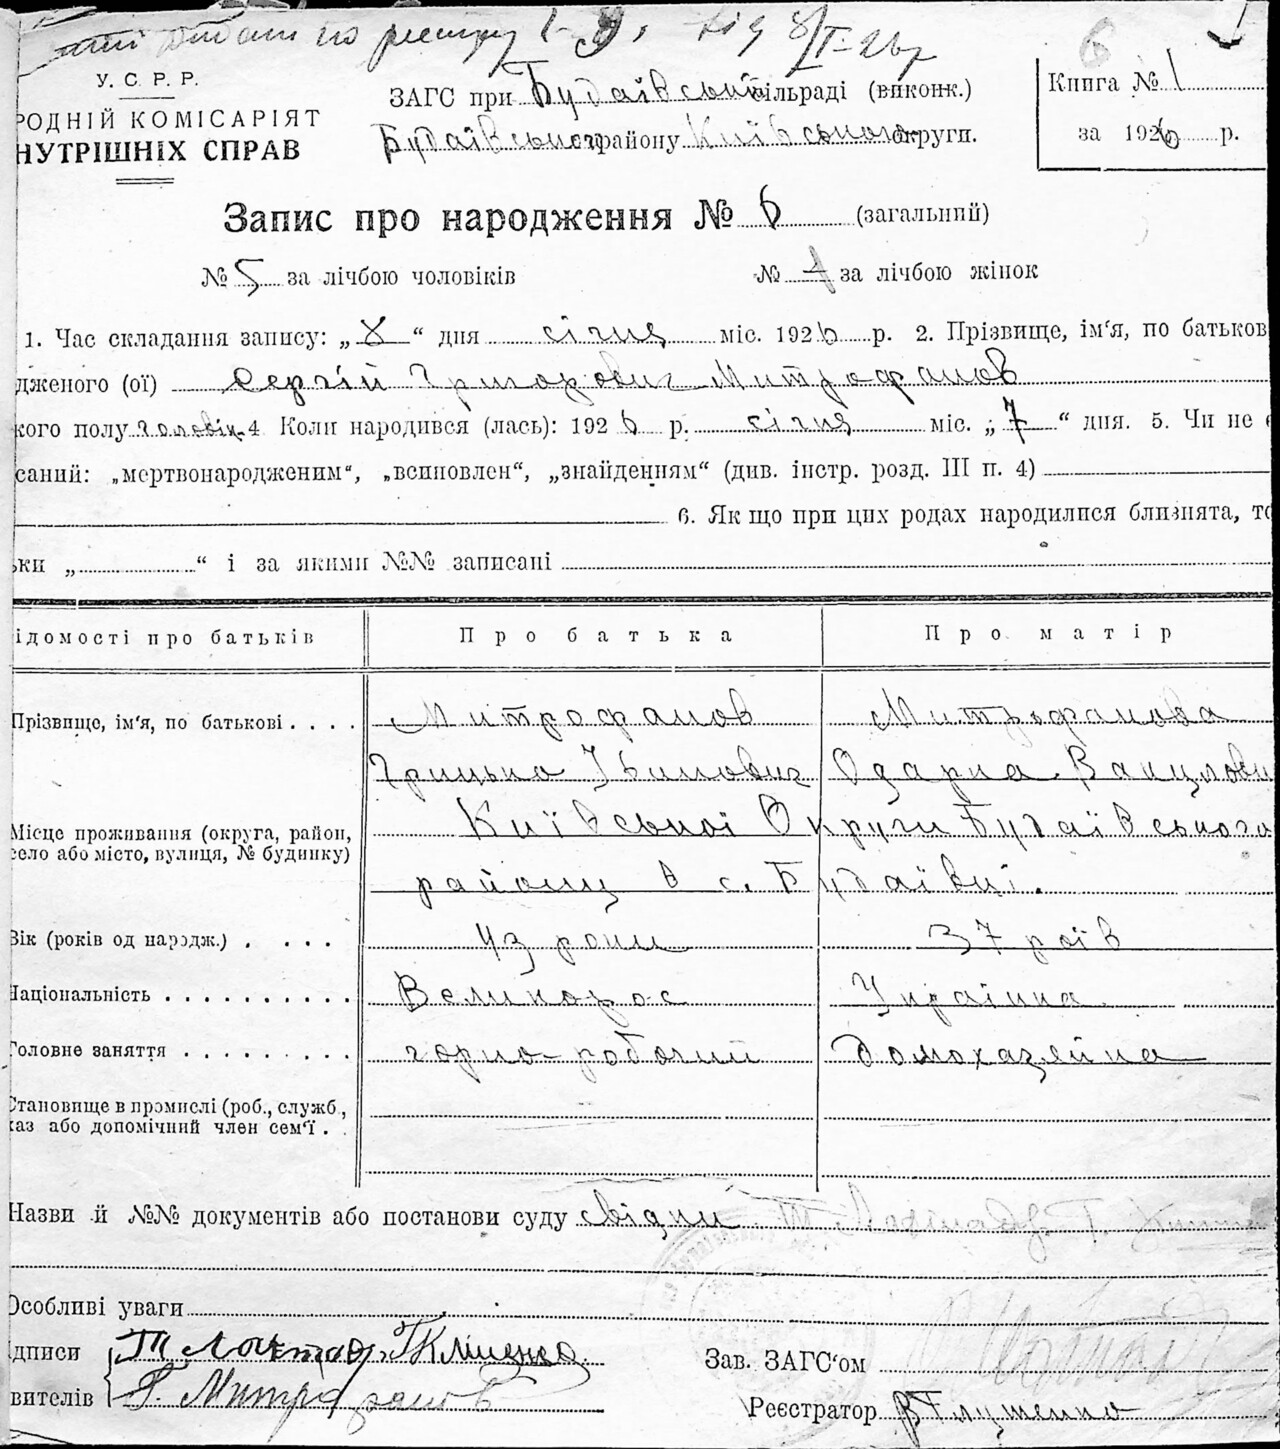 по реєстру від 8/I-26р
У.С.Р.Р.
РОДНІЙ КОМІСАРІЯТ
НУТРІШНІХ СПРАВ
ЗАГС при Будаївській сільраді (виконк.)
Будаївського району Київського округи.
6
Книга № 1
за 1926 р.
Запис про народження № 6 (загальний)
№ 5 за лічбою чоловіків № за лічбою жінок
1. Час складання запису: „8“ дня січня міс. 1926 р. 2. Прізвище, ім‘я, по батьков
дженого (ої) Сергій Григорович Митрофанов
кого полу чоловіч. 4 Коли народився (лась): 1926 р. січня міс. „7“ дня. 5. Чи не є
саний: „мертвонародженим“, „всиновлен“, „знайденням“ (див. інстр. розд. III п. 4)
6. Як що при цих родах народилися близнята, то
ьки „ “ і за якими №№ записані
ідомості про батьків Про батька Про матір
Прізвище, ім‘я, по батькові .... Митрофанов Митрофанова
Грицько Іванович Одарка Вакулови
Місце проживання (округа, район, Київської Округи Будаївського
село або місто, вулиця, № будинку)
району в с. Будаївці.
Вік (років од народж.) . ... 43 роки 37 роїв
Національність .......... Великорос Українка
Головне заняття ......... горно-робочий домохазяйка
Становище в промислі (роб., служб.,
каз або допомічний член сем‘ї . .
Назви й №№ документів або постанови суду свідки
Особливі уваги
дписи Т. Г. Кліщенко
Зав. ЗАГС‘ом
вителів Г. Митрофанов
Реєстратор В Глущенко